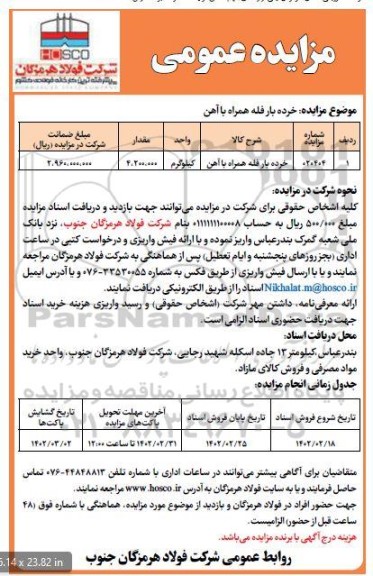 HOSCO
شرکت فولاد هرمزگان
مزایده عمومی
موضوع مزایده: خرده بار فله همراه با آهن
ردیف
شماره مزایده
شرح کالا
واحد
مقدار
مبلغ ضمانت شرکت در مزایده (ریال)
۱
۰۲۰۴۰۴
خرده بار فله همراه با آهن
کیلوگرم
۴.۲۰۰.۰۰۰
۲.۹۶۰.۰۰۰.۰۰۰
نحوه شرکت در مزایده:
کلیه اشخاص حقوقی برای شرکت در مزایده می‌توانند جهت بازدید و دریافت اسناد مزایده
مبلغ ۵۰۰/۰۰۰ ریال به حساب بنام شرکت فولاد هرمزگان جنوب، نزد بانک
ملی شعبه گمرک بندرعباس واریز نموده و با ارائه فیش واریزی و درخواست کتبی در ساعات
اداری (بجز روزهای پنجشنبه و ایام تعطیل) پس از هماهنگی به شرکت فولاد هرمزگان مراجعه
نمایند و یا با ارسال فیش واریزی از طریق فکس به شماره ۳۳۵۳۰۰۵۵-۰۷۶ و یا آدرس ایمیل
Nikhalat.m@hosco.ir اسناد را از طریق الکترونیکی دریافت نمایند.
ارائه معرفی‌نامه، داشتن مهر شرکت (اشخاص حقوقی) و رسید واریزی هزینه خرید اسناد
جهت دریافت حضوری اسناد الزامی است.
محل دریافت اسناد:
بندرعباس کیلومتر ۱۳ جاده اسکله شهید رجایی، شرکت فولاد هرمزگان جنوب، واحد خرید
مواد مصرفی و فروش کالای مازاد.
جدول زمانی انجام مزایده:
تاریخ شروع فروش اسناد
تاریخ پایان فروش اسناد
آخرین مهلت تحویل پاکت‌های مزایده
تاریخ گشایش پاکت‌ها
۱۴۰۲/۰۲/۱۸
۱۴۰۲/۰۲/۲۵
۱۴۰۲/۰۲/۳۱ تا ساعت ۱۲:۰۰
۱۴۰۲/۰۳/۰۲
متقاضیان برای آگاهی بیشتر می‌توانند در ساعات اداری با شماره تلفن ۴۴۸۴۸۸۱۳-۰۷۶ تماس
حاصل فرمایند و یا به سایت فولاد هرمزگان به آدرس www.hosco.ir مراجعه نمایند.
جهت حضور افراد در فولاد هرمزگان و بازدید از موضوع مورد مزایده، هماهنگی با شماره فوق (۴۸
ساعت قبل از حضور) الزامیست.
هزینه درج آگهی با برنده مزایده می‌باشد.
روابط عمومی شرکت فولاد هرمزگان جنوب
6.14 x 23.82 in